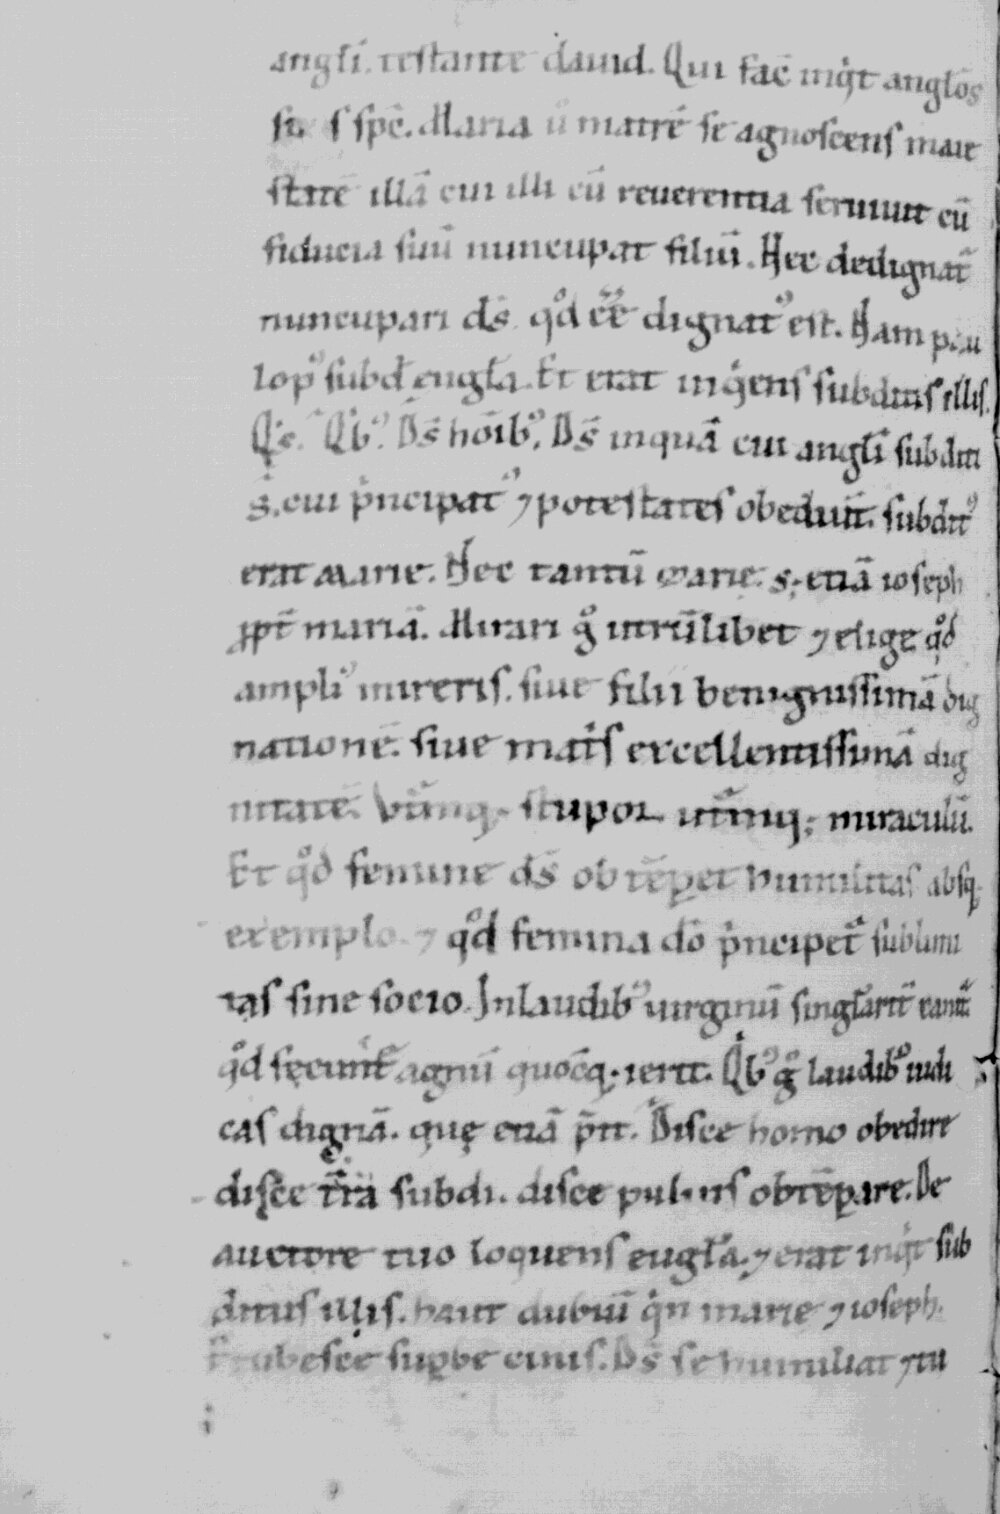 angl̄i. testante dauid. Qui fac̄ inq̇t angl̄os
su s sp̄c. Maria ů matrē se agnoscens maie
statē illā cui illi cū reuerentia seruiut cū
fiducia suū nuncupat filiū. Nec dedignat̄
nuncupari d̄s. qđ ēē dignatꝰ est. Nam pau
lopꝰ subđ eugl̄a. Et erat inq̇ens subditus illis.
Q̇s. Q̇bꝰ. D̄s hōibꝰ. D̄s inquā cui angl̄i subditi
s̄. cui ṗncipatꝰ ⁊ potestates obediūt. subditꝰ
erat marie. Nec tantū marie. s; etiā ioseph
ꝓpt̄ mariā. Mirari g̊ utrūlibet ⁊ elige qđ
ampliꝰ mireris. siue filii benignissimā dig
nationē. siue mat̄s excellentissimā dig
nitatē. Vt̄mq; stupor ut̄mq; miraculū.
Et qđ femine d̄s obtēꝑet humilitas absq;
exemplo. ⁊ qđ femina dō ṗncipet̄ sublimi
tas sine socio. In laudibꝰ uirginū singl̄arit̄ canit̄
qđ secunt̄ agnū quōcq; ierit. Q̇bꝰ g̊ laudibꝰ iudi
cas dignā. quę etiā p̄it. Disce homo obedire
disce t̄ra subdi. disce puluis obtēꝑare. De
auctore tuo loquens eugl̄a. ⁊ erat inq̇t sub
ditus illis. haut dubiū q̇n marie ⁊ ioseph.
Erubesce suꝑbe cinis. D̄s se humiliat ⁊ tu